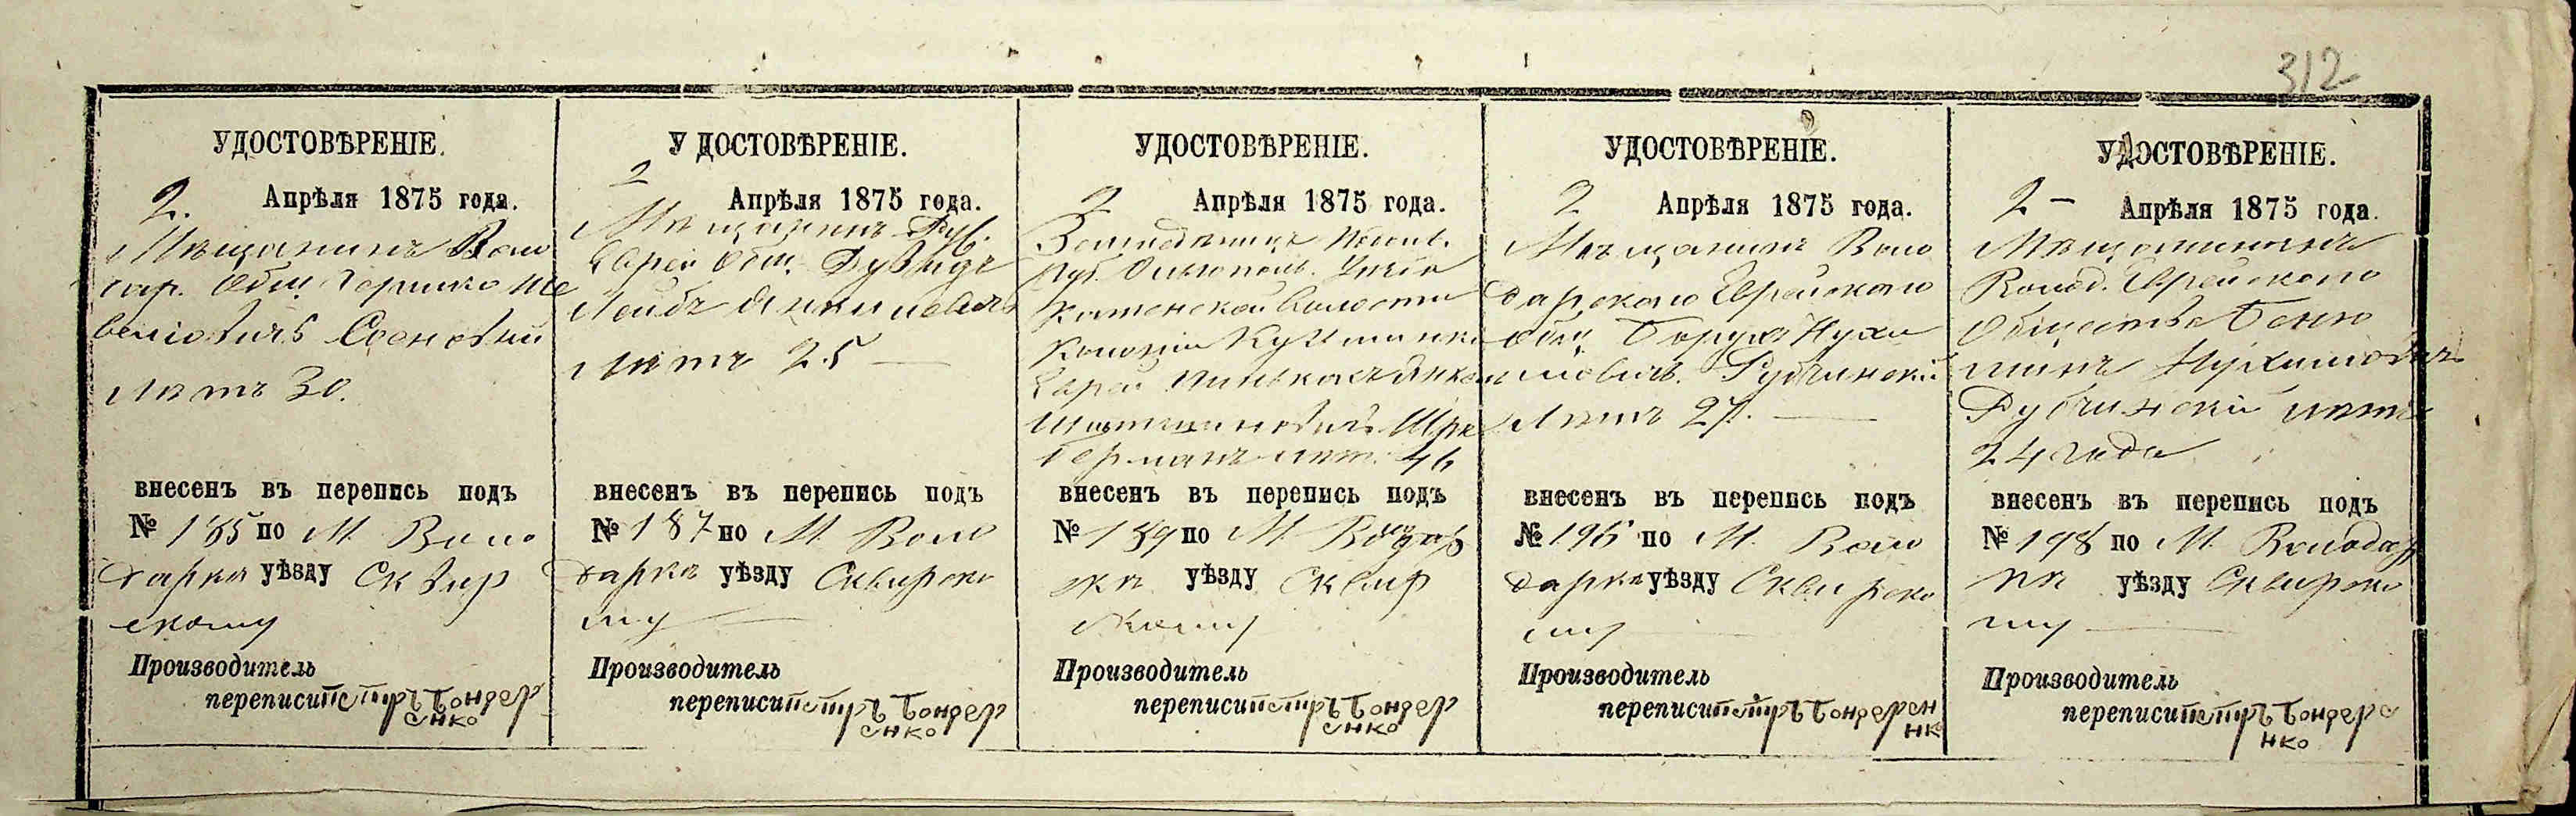 312
УДОСТОВѢРЕНІЕ.
2. Апрѣля 1875 года.
Мѣщанинъ Воло
дар. Общ. Гершко Ше
велiовичъ Сосновскій
лѣтъ 30.
внесенъ въ перепись подъ
№ 185 по М. Воло
даркѣ уѣзду Сквир
скому
Производитель
переписи Петръ Бондар
енко
УДОСТОВѢРЕНІЕ.
2 Апрѣля 1875 года.
Мѣщанинъ
Еврей Общ. Дувидъ
Лейбъ Янкелевичъ
лѣтъ 25 —
внесенъ въ перепись подъ
№ 187 по М. Воло
даркѣ уѣзду Сквирско
му —
Производитель
переписи Петръ Бондар
енко
УДОСТОВѢРЕНІЕ.
2 Апрѣля 1875 года.
Губ. Уѣзда
волости
Колоніи
Еврей
Шле
Германъ лѣт. 46
внесенъ въ перепись подъ
№ 189 по М. Володар
кѣ уѣзду Сквир
скому
Производитель
переписи Петръ Бондар
енко
УДОСТОВѢРЕНІЕ.
2 Апрѣля 1875 года.
Мѣщанинъ Воло
дарскаго Еврейскаго
Общ. Борухъ Нухи
мовичъ. Дубчинскій
лѣтъ 27. —
внесенъ въ перепись подъ
№ 196 по М. Воло
даркѣ уѣзду Сквирско
му —
Производитель
переписи Петръ Бондарен
нко
УДОСТОВѢРЕНІЕ.
2 – Апрѣля 1875 года.
Мѣщанинъ
Волод. Еврейскаго
Общества Беню
минъ Нухимовичъ
Дубчинскій лѣтъ
24 года
внесенъ въ перепись подъ
№ 198 по М. Володар
кѣ уѣзду Сквирско
му —
Производитель
переписи Петръ Бондаре
нко